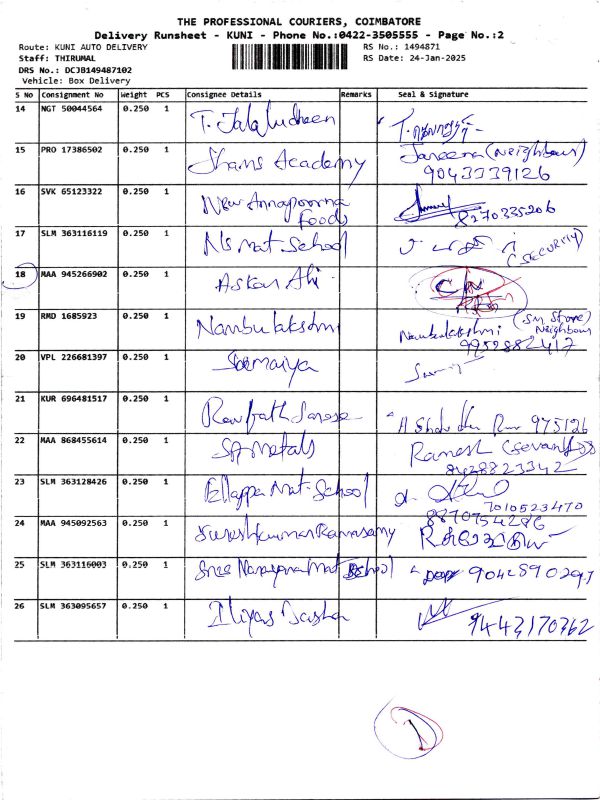 THE PROFESSIONAL COURIERS, COIMBATORE
Delivery Runsheet - KUNI - Phone No.:0422-3505555 - Page No.:2
Route: KUNI AUTO DELIVERY RS No.: 1494871
Staff: THIRUMAL RS Date: 24-Jan-2025
DRS No.: DCJB149487102
Vehicle: Box Delivery
S No Consignment No Weight PCS Consignee Details Remarks Seal & Signature
14 NGT 50044564 0.250 1 T. Jalaludheen
15 PRO 17386502 0.250 1 Shams Academy Jareena (Neighbour)
9043339126
16 SVK 65123322 0.250 1 New Annapoorna
Foods 8270335206
17 SLM 363116119 0.250 1 NS Mat. School (SECURITY)
18 MAA 945266902 0.250 1 Askar Ali
19 RMD 1685923 0.250 1 Nambulakshmi Nambulakshmi (SM Store)
Neighbour
9952882417
20 VPL 226681397 0.250 1
21 KUR 696481517 0.250 1 975126
22 MAA 868455614 0.250 1 SP Metals Ramesh
8428823342
23 SLM 363128426 0.250 1 Ellappa Mat. School 7010523470
24 MAA 945092563 0.250 1 Sureshkumar Ramasamy 8870754286
25 SLM 363116003 0.250 1 Sree Narayana Mat School
26 SLM 363095657 0.250 1 Iliyas Basha 9443170362